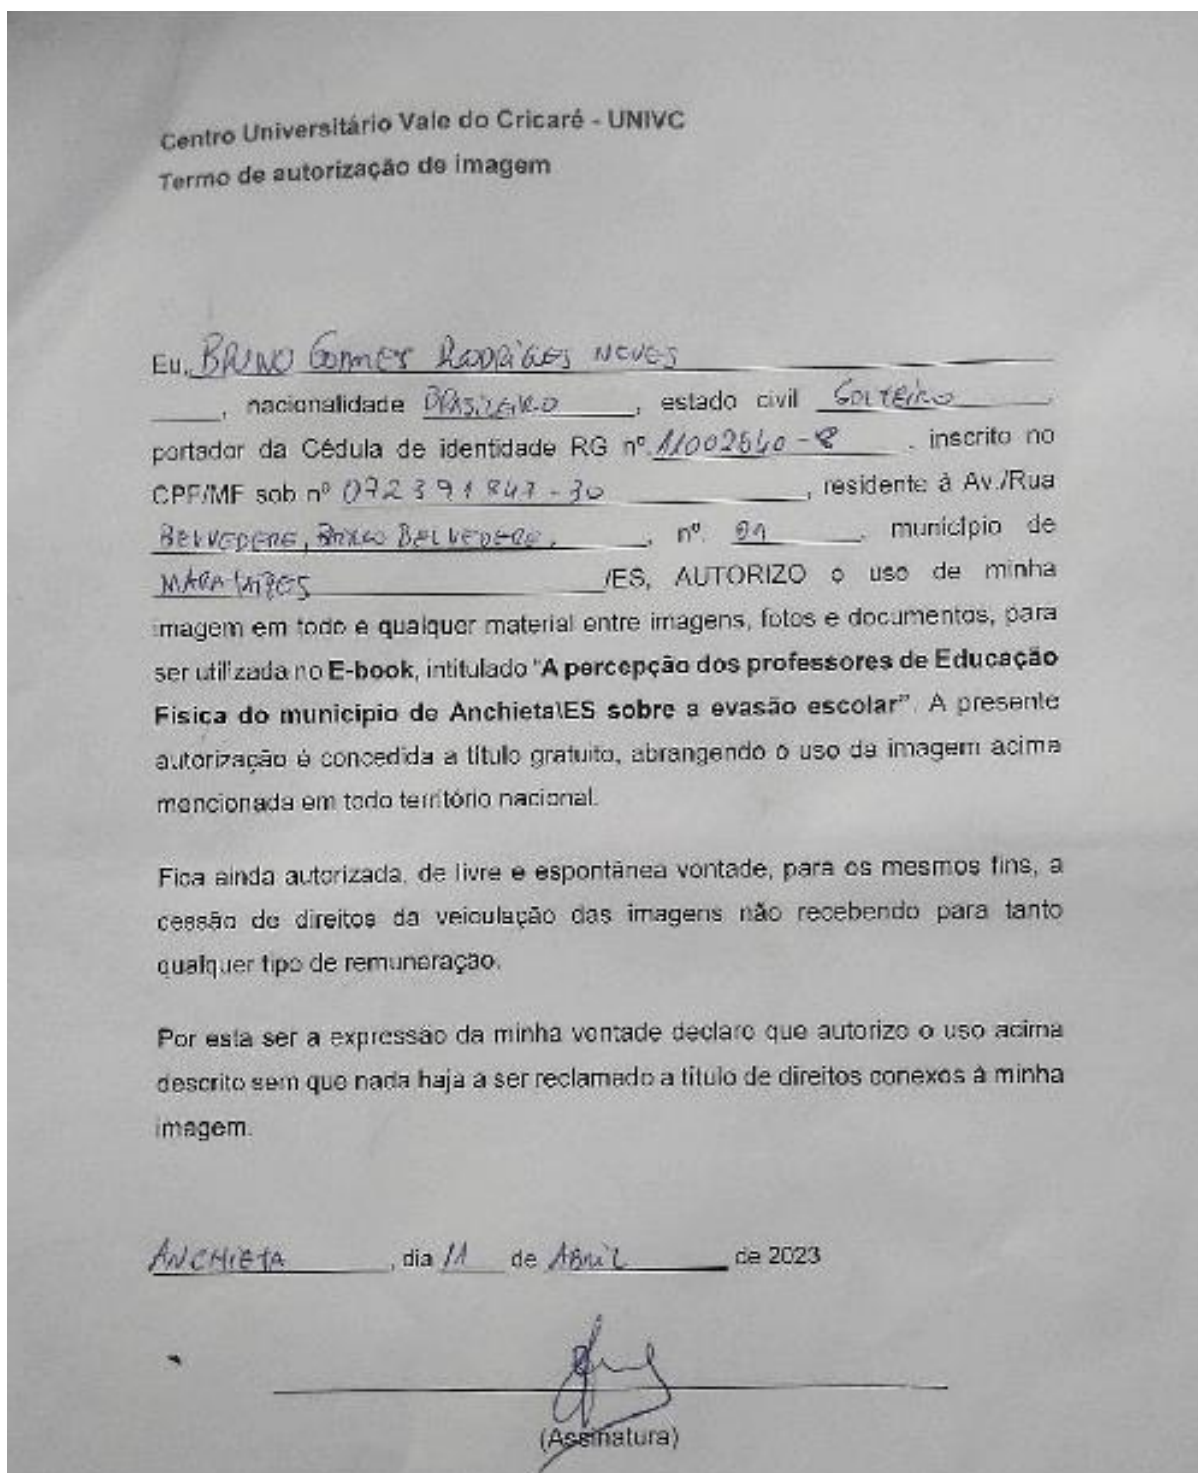 Centro Universitário Vale do Cricaré - UNIVC
Termo de autorização de imagem
Eu, BRUNO GOMES RODRIGUES NEVES
, nacionalidade BRASILEIRO, estado civil SOLTEIRO,
portador da Cédula de identidade RG nº. 11002640-8, inscrito no
CPF/MF sob nº 072391847-30, residente à Av./Rua
BELVEDERE, BAIRRO BELVEDERE, nº. 91, município de
/ES, AUTORIZO o uso de minha
imagem em todo e qualquer material entre imagens, fotos e documentos, para
ser utilizada no E-book, intitulado "A percepção dos professores de Educação
Física do município de Anchieta\ES sobre a evasão escolar". A presente
autorização é concedida a título gratuito, abrangendo o uso da imagem acima
mencionada em todo território nacional.
Fica ainda autorizada, de livre e espontânea vontade, para os mesmos fins, a
cessão de direitos da veiculação das imagens não recebendo para tanto
qualquer tipo de remuneração.
Por esta ser a expressão da minha vontade declaro que autorizo o uso acima
descrito sem que nada haja a ser reclamado a título de direitos conexos à minha
imagem.
ANCHIETA, dia 11 de ABRIL de 2023
(Assinatura)